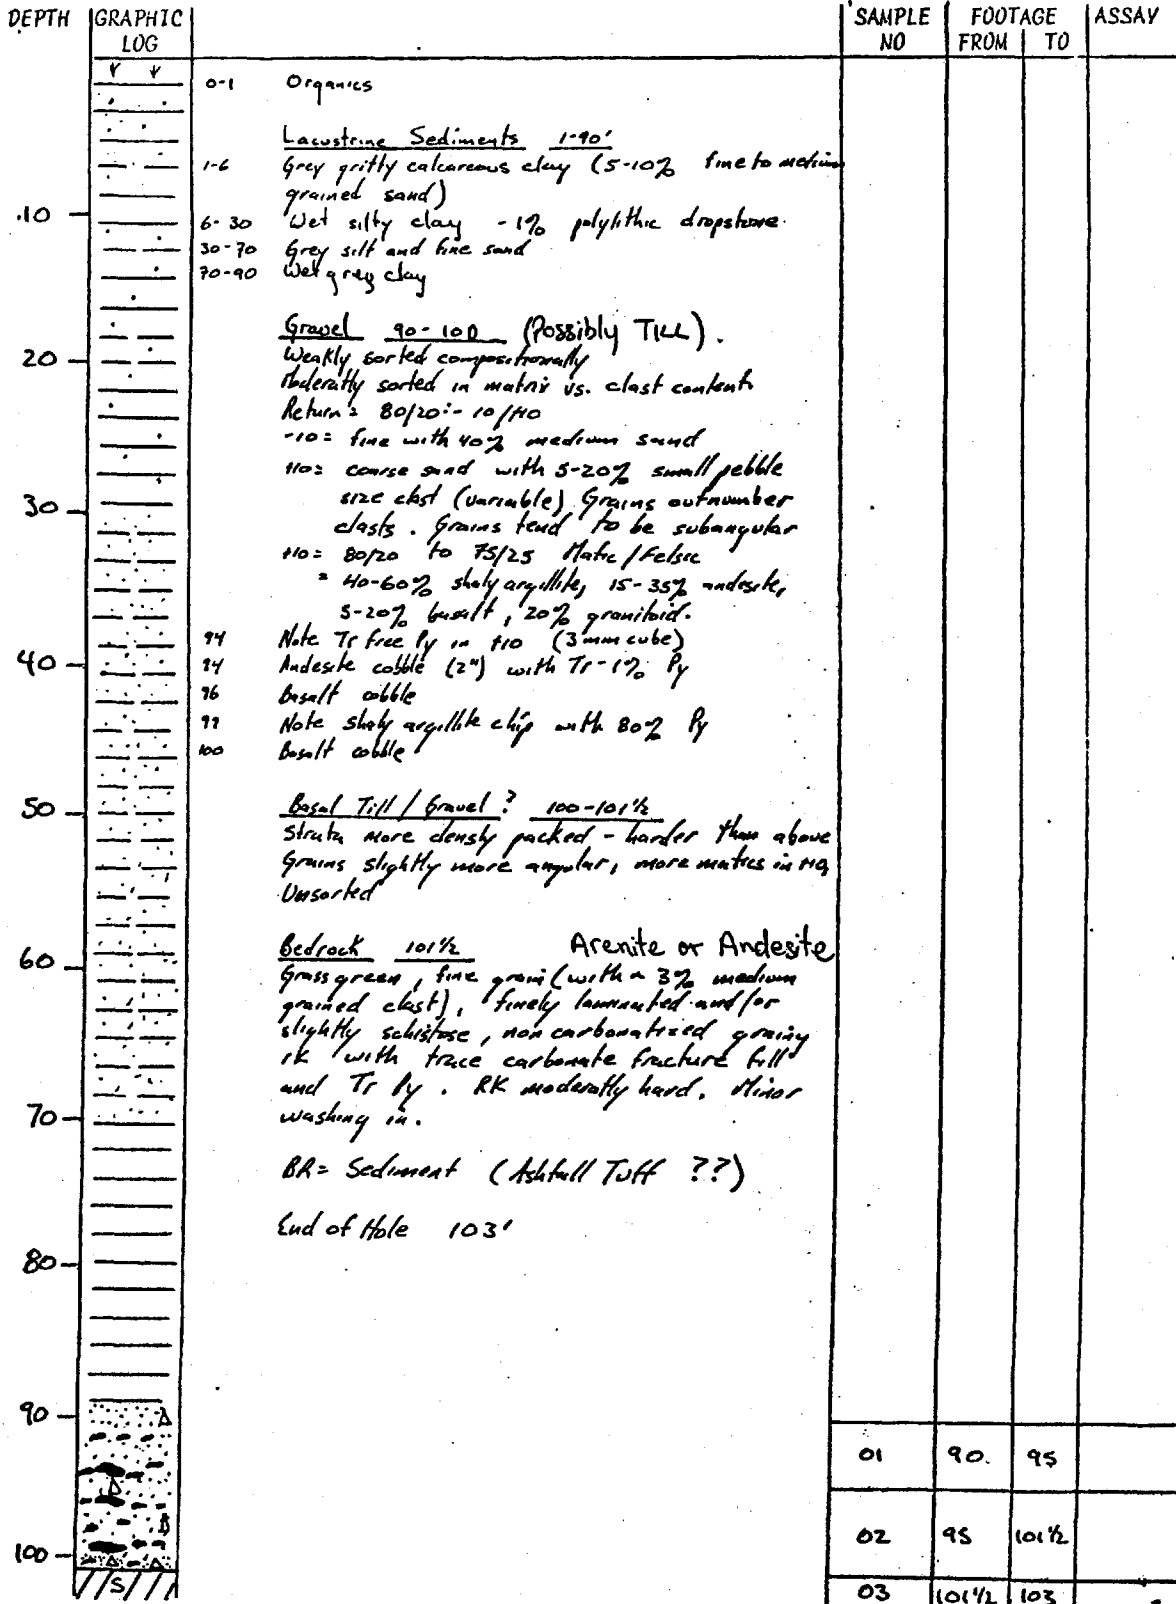 DEPTH GRAPHIC LOG SAMPLE NO FOOTAGE FROM TO ASSAY
0-1 Organics
Lacustrine Sediments 1-90'
1-6 Grey gritty calcareous clay (5-10% fine to medium
grained sand)
10
6-30 Wet silty clay -1% polylithic dropstone
30-70 Grey silt and fine sand
70-90 Wet grey clay
Gravel 90-100 (Possibly TILL).
20
Weakly sorted compositionally
Moderatly sorted in matrix vs. clast content
Return = 80/20 :- 10/+10
-10 = fine with 40% medium sand
+10 = coarse sand with 5-20% small pebble
size clast (variable) Grains outnumber
30
clasts. Grains tend to be subangular
+10 = 80/20 to 75/25 Mafic/Felsic
= 40-60% shaly argillite, 15-35% andesite,
5-20% basalt, 20% granitoid.
94 Note Tr free Py in +10 (3mm cube)
40
94 Andesite cobble (2") with Tr-1% Py
96 Basalt cobble
99 Note shaly argillite chip with 80% Py
100 Basalt cobble
50
Basal Till/Gravel? 100-101½
Strata more densly packed - harder than above
Grains slightly more angular, more mafics in +10,
Unsorted
60
Bedrock 101½ Arenite or Andesite
Grass green, fine grain (with ~ 3% medium
grained clast), finely laminated and/or
slightly schistose, non carbonatized grainy
rk with trace carbonate fracture fill
and Tr Py. RK moderatly hard. Minor
70
washing in.
BR = Sediment (Ashfall Tuff ??)
End of Hole 103'
80
90
01 90. 95
02 95 101½
100
S
03 101½ 103